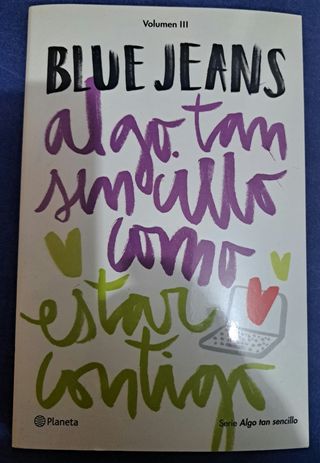 Volumen III
BLUE JEANS
algo tan
sencillo
como
estar
contigo
Planeta
Serie Algo tan sencillo